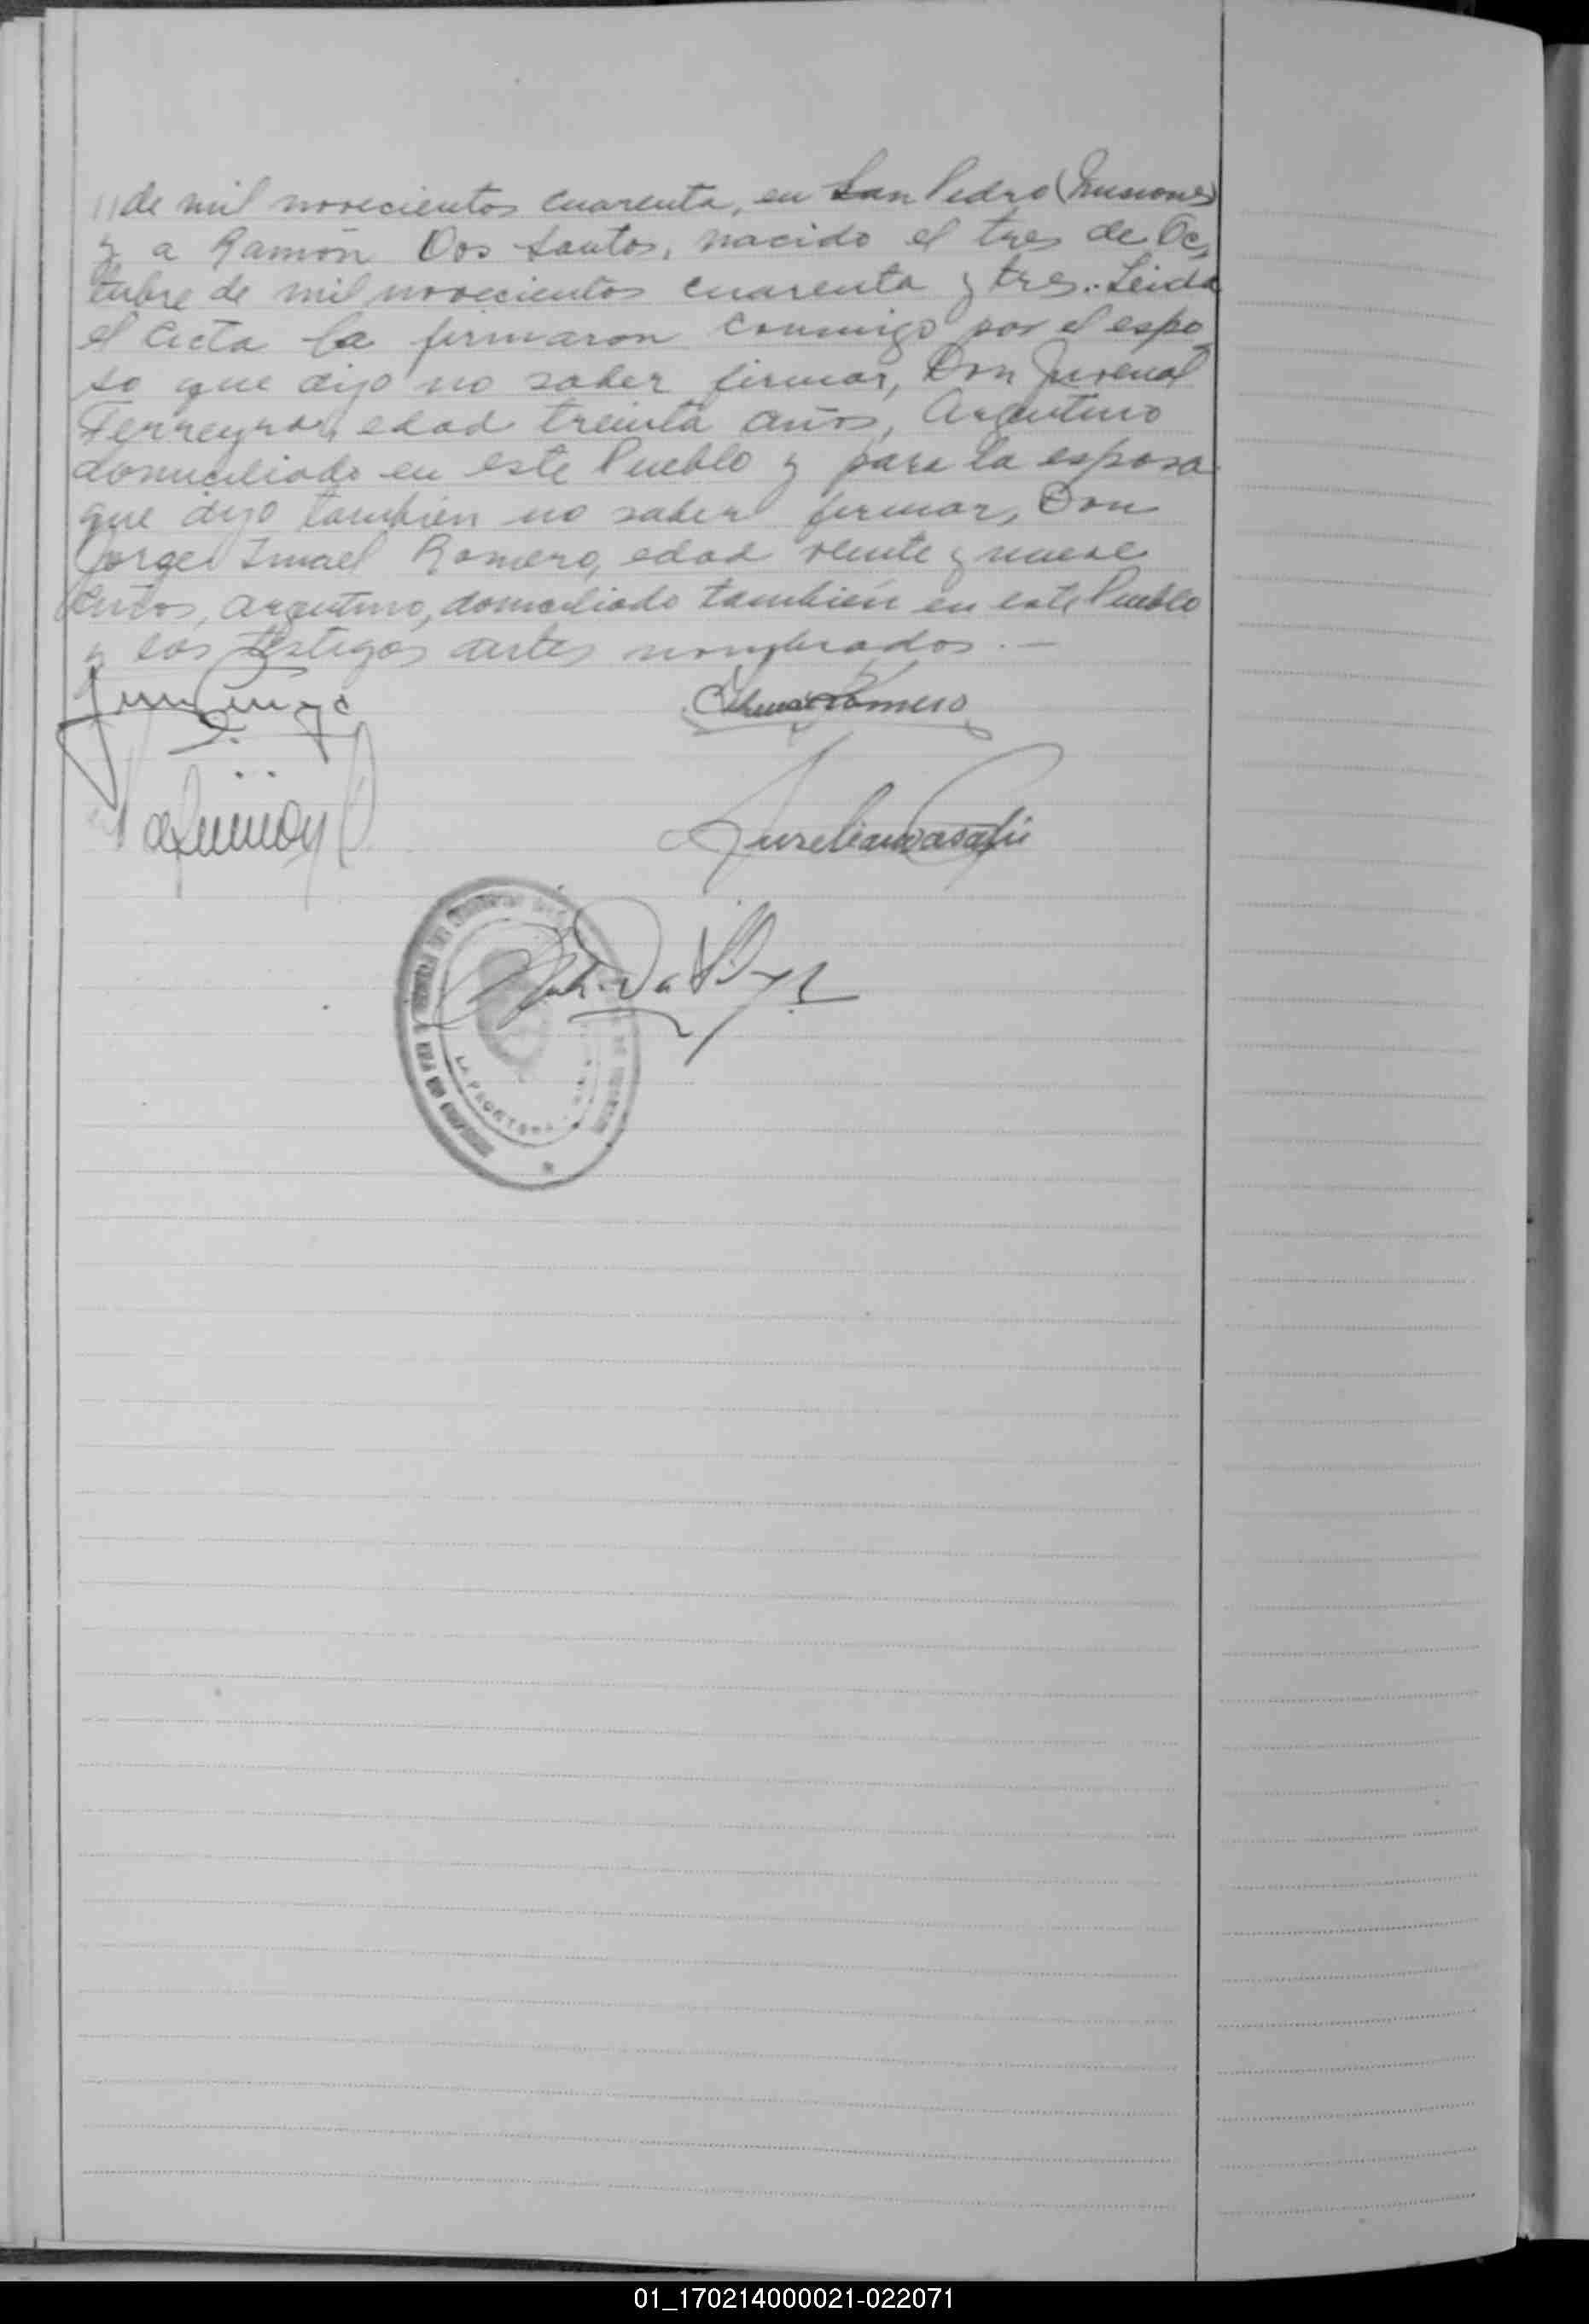 //de mil novecientos cuarenta, en San Pedro (Misiones)
y a Ramón Dos Santos, nacido el tres de Oc,
tubre de mil novecientos cuarenta y tres.- Leida
el Acta la firmaron conmigo por el espo
so que dijo no saber firmar, Don Juvenal
Ferreyra, edad treinta años, Argentino
domiciliado en este Pueblo y para la esposa
que dijo también no saber firmar, Don
Jorge Ismael Romero, edad veinte y nueve
años, argentino, domiciliado también en este Pueblo
y los testigos antes nombrados.-
Romero
Aureliano
LA FRONTERA
01_170214000021-022071